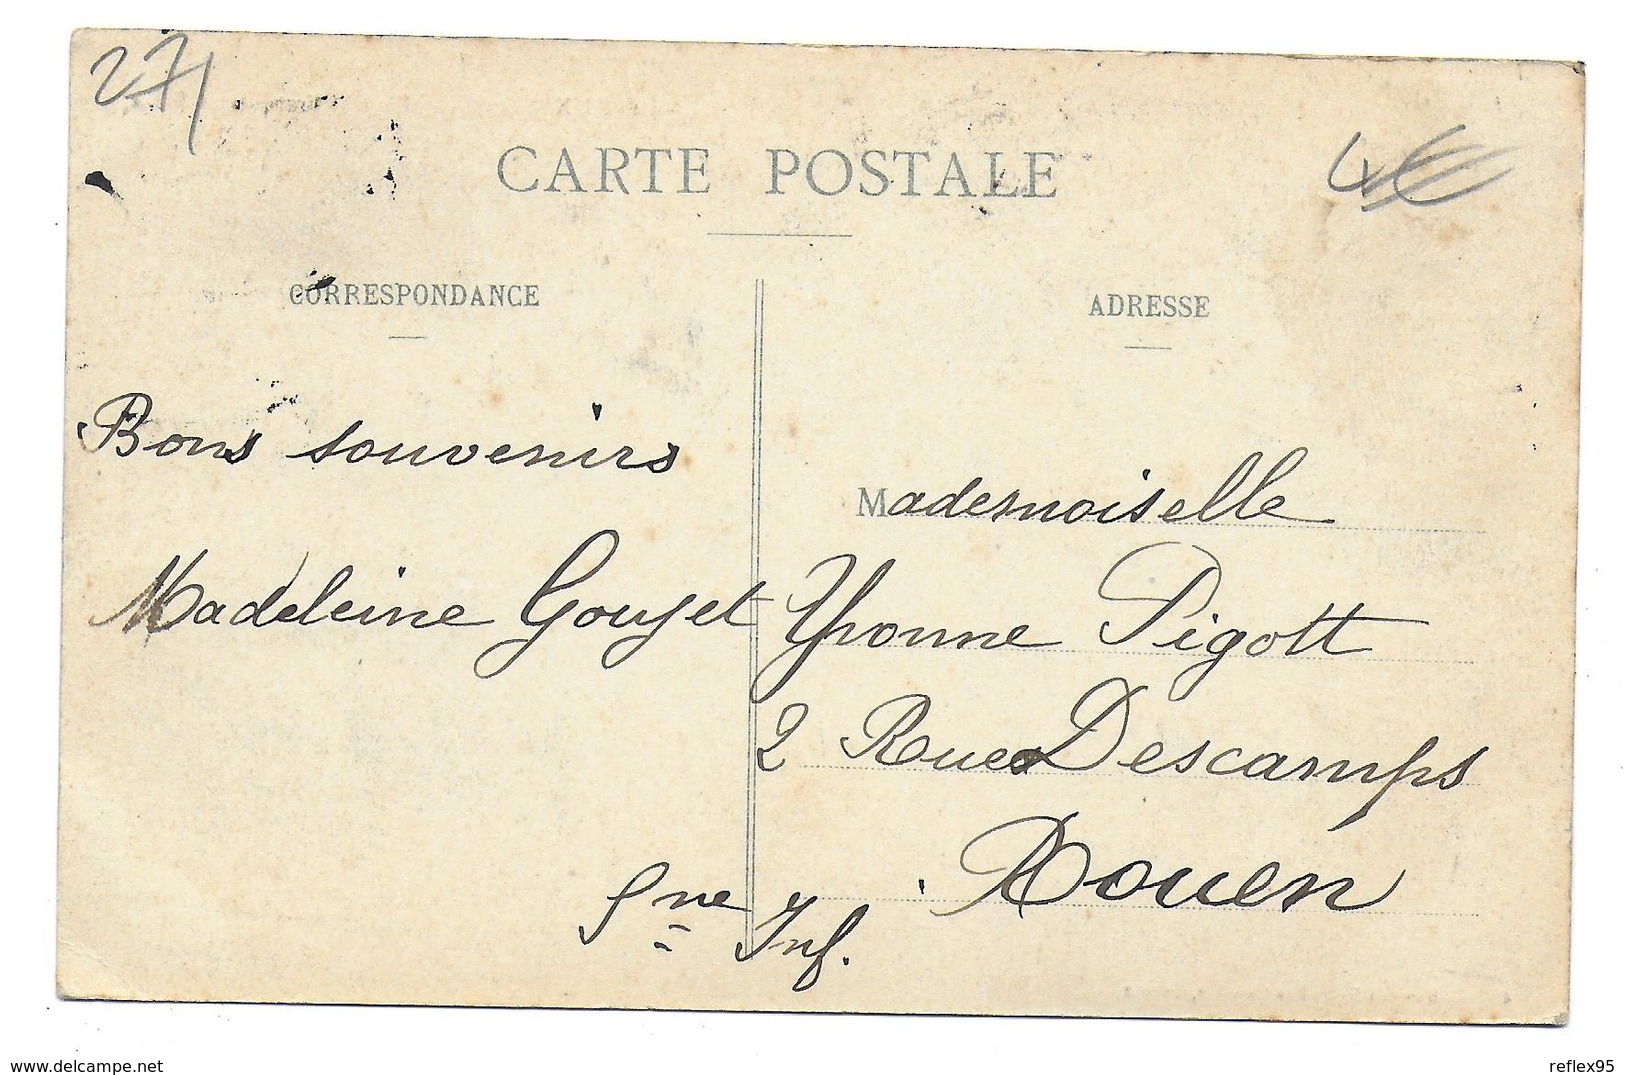 27
CARTE POSTALE
4€
CORRESPONDANCE
ADRESSE
Bons souvenirs
Madeleine Goujet
Mademoiselle
Yvonne Pigott
2 Rue Descamps
Rouen
Sne Inf.
www.delcampe.net
reflex95